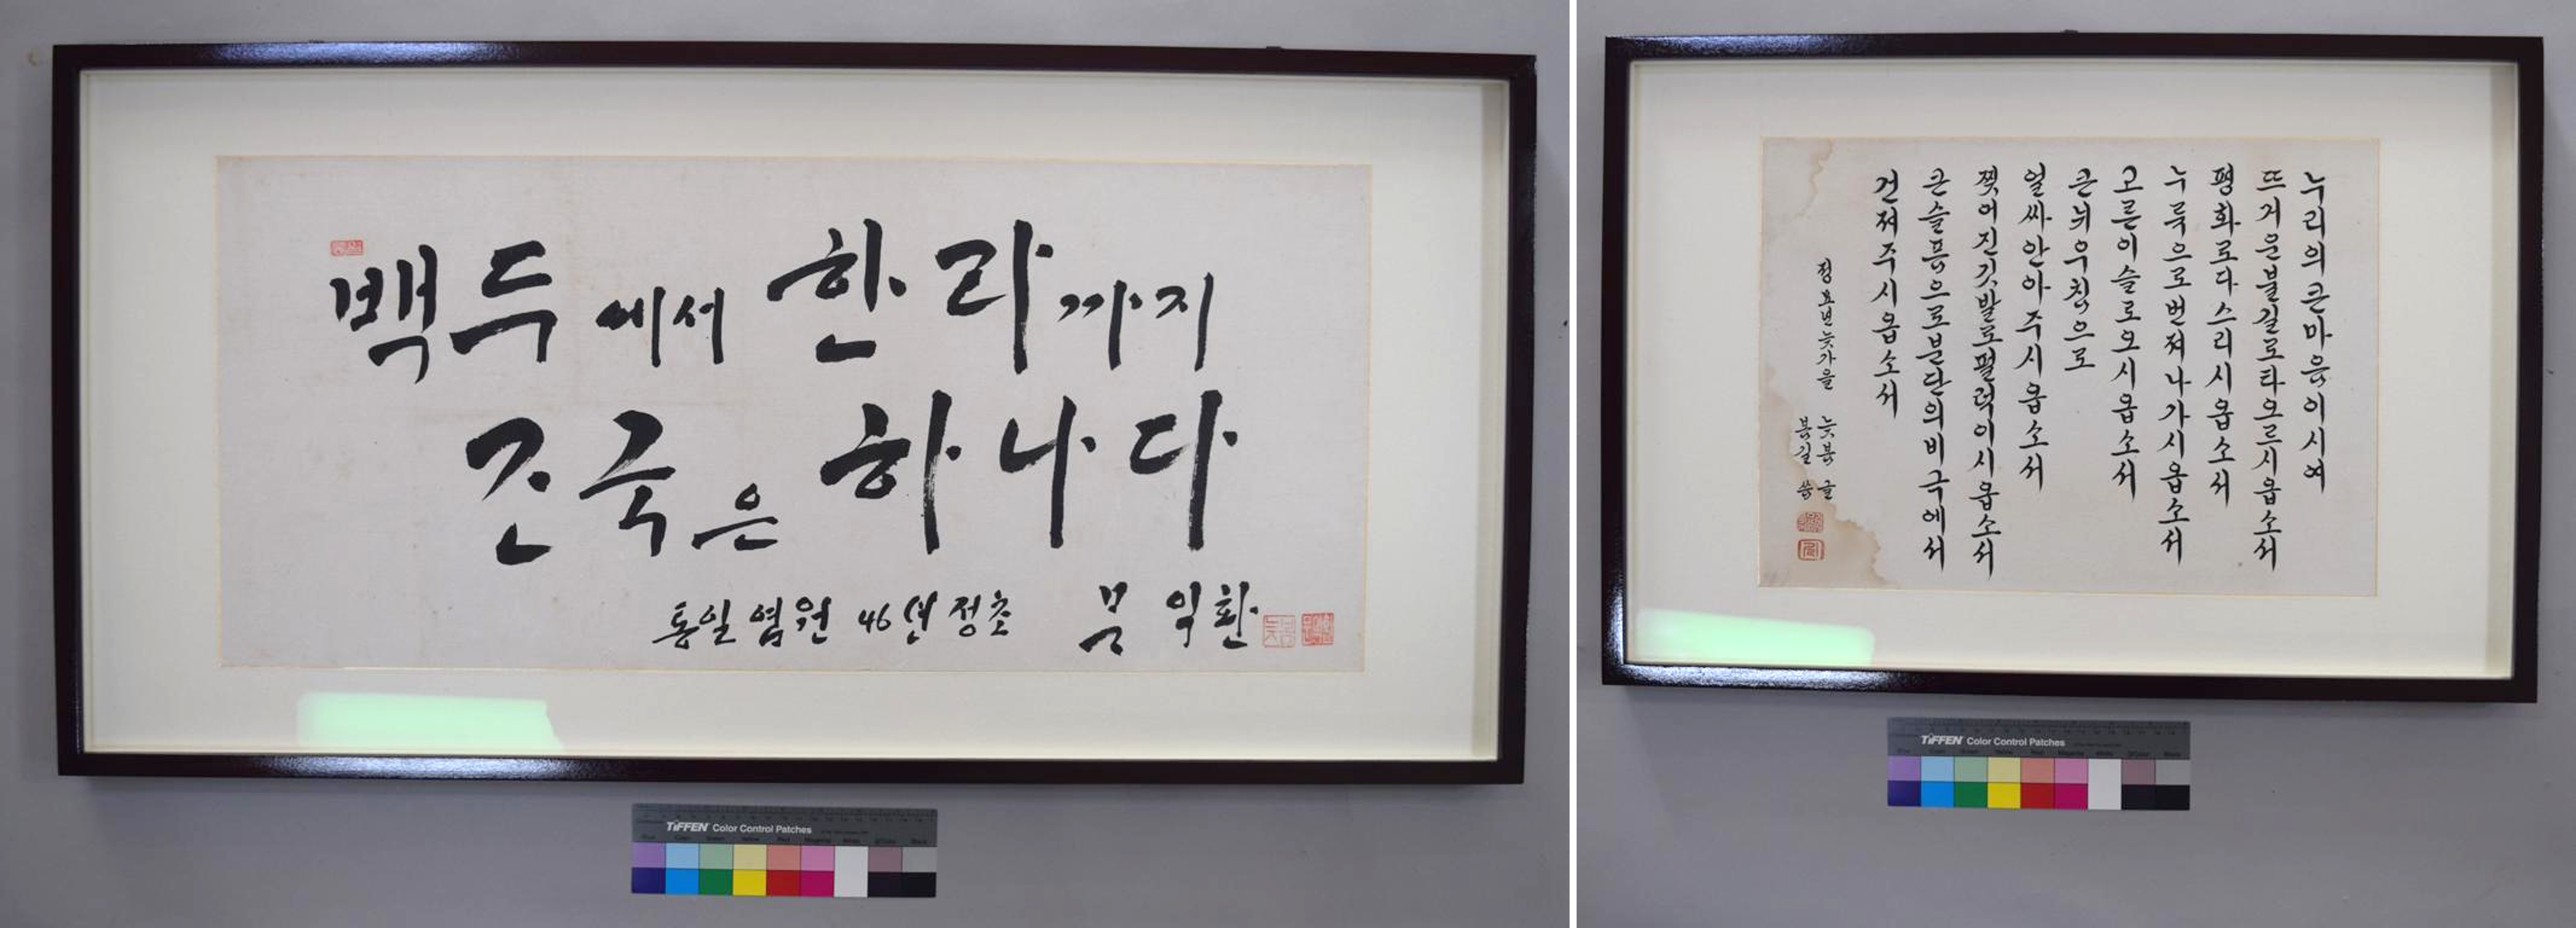 백두에서 한라까지
조국은 하나다
통일염원 46년 정초 문익환
TIFFEN Color Control Patches
누리의큰마음이시여
뜨거운불길로타오르시옵소서
평화로다스리시옵소서
누룩으로번져나가시옵소서
고른이슬로오시옵소서
큰뉘우침으로
얼싸안아주시옵소서
찢어진깃발로펄럭이시옵소서
큰슬픔으로분단의비극에서
건져주시옵소서
정묘년늦가을 늦봄 글
봄길 씀
TIFFEN Color Control Patches